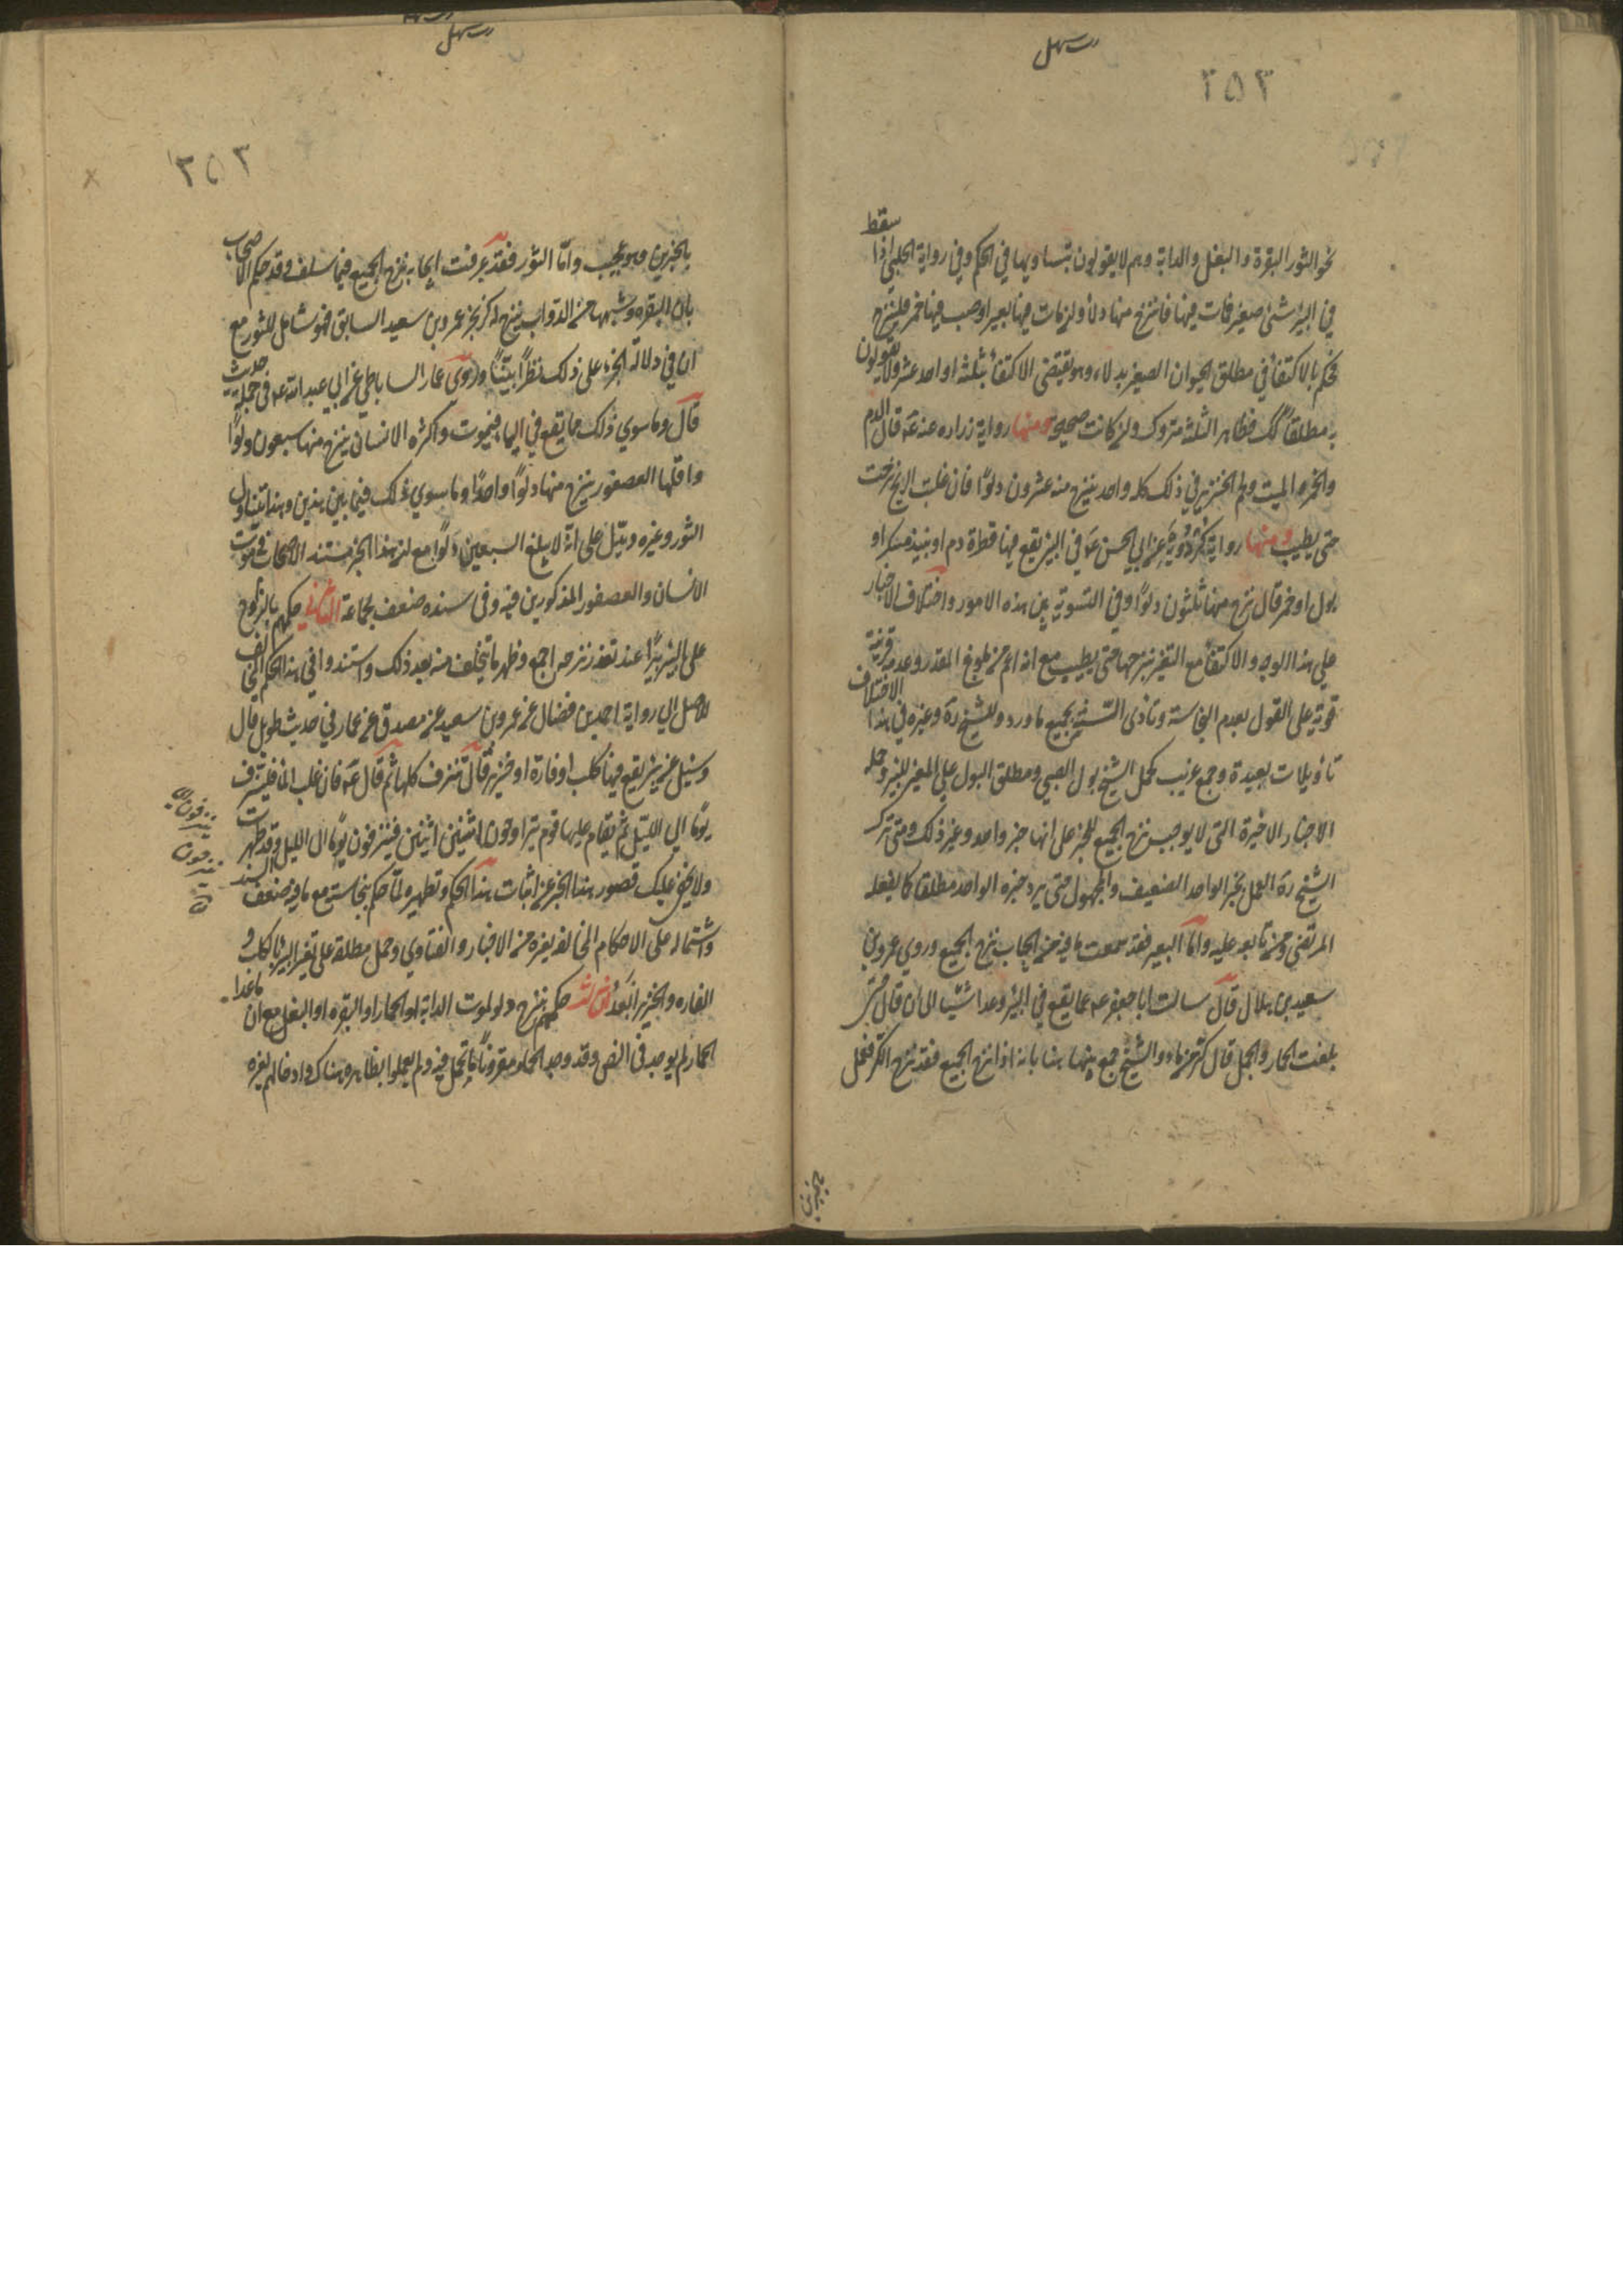 ٢٥٢
سقط
نحو الثور البقرة والبغل والدابة وهم لا يقولون بتساويها في الحكم وفي رواية الحلبي اذا
في البئر شئ صغير فمات فيها فانزح منها دلاء ولن مات فيها بعير او صب فيها خمر فلتنزح
فحكم بالاكتفاء في مطلق الحيوان الصغير بدلاء وهو يقتضي الاكتفاء بثلثة او احد عشر ولا يقولون
به مطلقا فظاهر الثلثة متروك ولن كانت صحيحة ومنها رواية زراره عنه ع قال الدم
والخمر والميت ولحم الخنزير في ذلك كله واحد ينزح منه عشرون دلوًا فان غلبت الريح نزحت
حتى يطيب ومنها رواية كردويه عن ابي الحسن ع في البئر يقع فيها قطرة دم او نبيذ مسكر او
بول او خمر قال ينزح منها ثلثون دلوًا وفي التسوية بين هذه الامور واختلاف الاخبار
على هذا الوجه والاكتفاء مع التغير بنزحها حتى يطيب مع انه اعم من بلوغ المقدر وعدمه قرينة
قوية على القول بعدم النجاسة وتأدى السنة بجميع ما ورد وللشيخ ره وغيره في هذا الاختلاف
تاويلات بعيدة وجمع غريب كحمل الشيخ بول الصبي ومطلق البول على المغير للبئر وحمله
الاخبار الاخيرة التي لا يوجب نزح الجميع للخمر على انها خبر واحد وغير ذلك ومتى ترك
الشيخ ره العمل بخبر الواحد الضعيف والمجهول حتى يرد خبره الواحد مطلقا كما يفعله
المرتضى ومن تابعه عليه واما البعير فقد سمعت ما فيه من ايجاب نزح الجميع وروى عمرو بن
سعيد بن هلال قال سالت ابا جعفر ع عما يقع في البئر وعد اشياء الى ان قال حتى
بلغت الحمار والجمل قال كر من ماء والشيخ جمع بينها هنا بانه اذا نزح الجميع فقد نزح الكر فعمل
٢٥٣
بالخبرين وهو عجيب واما الثور فقد عرفت ايجابه نزح الجميع فيما سلف وقد حكم الاصحاب
بان البقره وشبهها من الدواب ينزح له كر بخبر عمرو بن سعيد السابق فهو شامل للثور مع
ان في دلالة الخبر على ذلك نظرًا بينًا وروى عمار الساباطي عن ابي عبد الله ع في جملة حديث
قال وما سوي ذلك مما يقع في الماء فيموت واكثره الانسان ينزح منها سبعون دلوًا
واقلها العصفور ينزح منها دلوًا واحدًا وما سوي ذلك فيما بين هذين وهذا يتناول
الثور وغيره ويدل على انه لا يبلغ السبعين دلوًا مع ان هذا الخبر مستند الاصحاب في موت
الانسان والعصفور المذكورين فيه وفي سنده ضعف بجماعة الثاني حكمهم بالتراوح
على البئر يومًا عند تعذر نزحه اجمع وظهر ما يتخلف منه بعد ذلك واستندوا في هذا الحكم المخالف
للاصل الى رواية احمد بن فضال عن عمرو بن سعيد عن مصدق عن عمار في حديث طويل قال
وسئل عن بئر يقع فيها كلب او فارة او خنزير قال تنزف كلها ثم قال ع فان غلب الماء فلينزف
يومًا الى الليل ثم يقام عليها قوم يتراوحون اثنين اثنين فينزفون يومًا الى الليل وقد طهرت
ولا يخفى عليك قصور هذا الخبر عن اثبات هذا الحكم وتطهير ما حكم بنجاسته مع ما فيه من ضعف السند
واشتماله على الاحكام المخالفه لغيره من الاخبار والفتاوي وحمل مطلقه على تغير البئر بالكلب و
الفاره والخنزير ابعد الثالث حكمهم بنزح دلو لموت الدابة او الحمار او البقره او البغل مع ان ما عدا
الحمار لم يوجد في النص وقد وجد الحمار مقرونًا بالجمل فيه ولم يعملوا بظاهره هناك وادخالهم لغيره
ينزفون
ينزحون